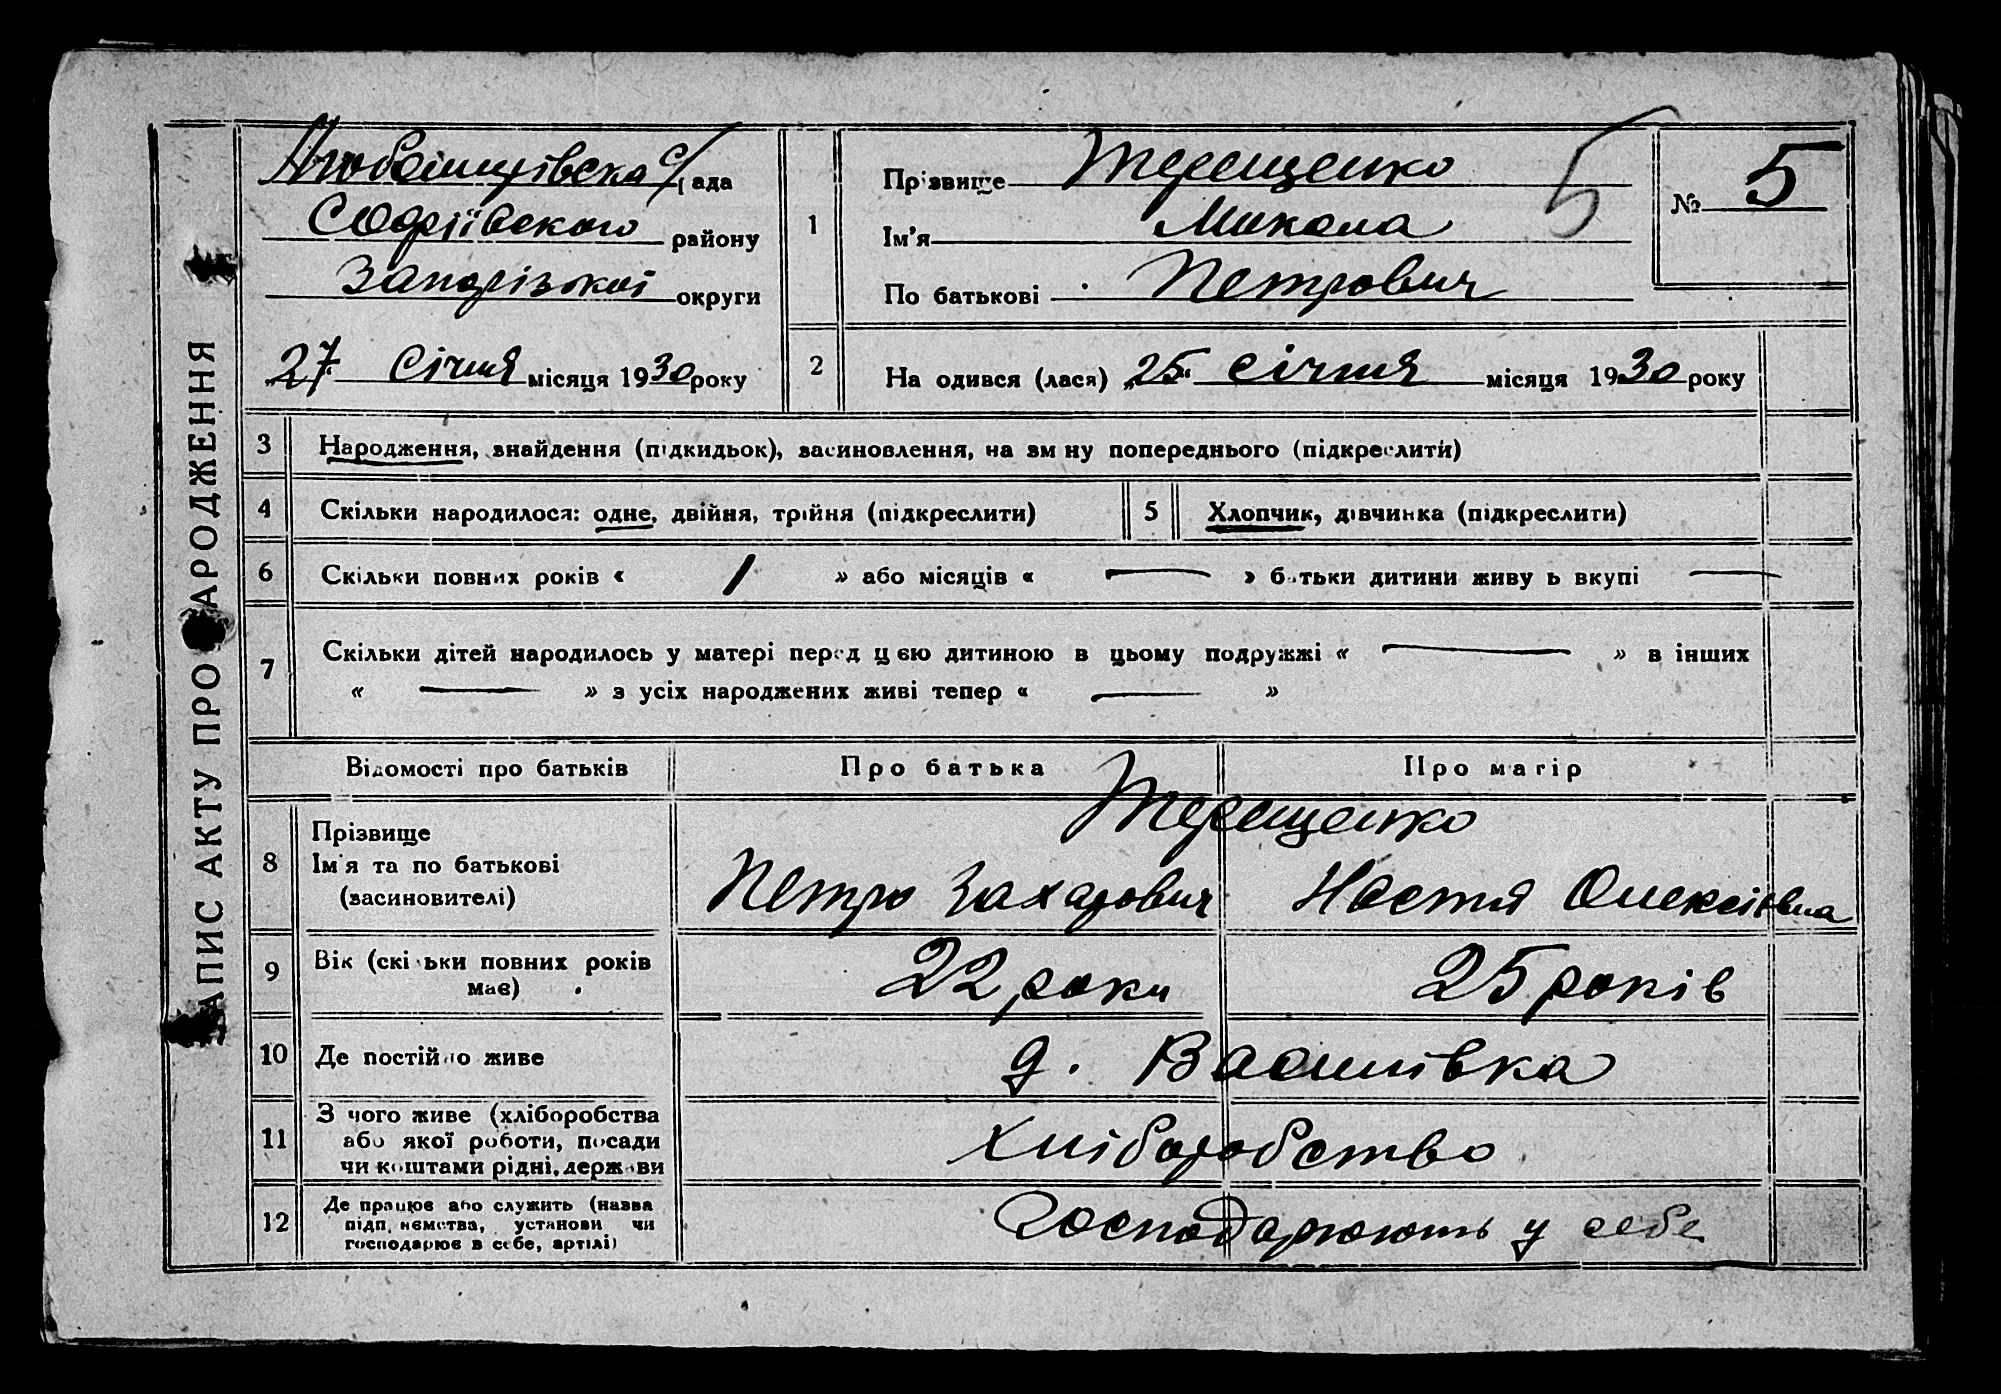 АПИС АКТУ ПРО АРОДЖЕННЯ
Любоміцівська с/рада
Софіївского району
Запорізької округи
„27“ Січня місяця 1930 року
1
Прізвище Терещенко
Ім'я Микола
По батькові Петрович
5
№ 5
2
На одився (лася) „25“ січня місяця 1930 року
3 Народження, знайдення (підкидьок), засиновлення, на зм ну попереднього (підкреслити)
4 Скільки народилося: одне, двійня, трійня (підкреслити)
5 Хлопчик, дівчинка (підкреслити)
6 Скільки повних років « 1 » або місяців « — » батьки дитини живу ь вкупі —
7 Скільки дітей народилось у матері перед цією дитиною в цьому подружжі « — » в інших
« — » з усіх народжених живі тепер « — »
Відомості про батьків
Про батька
Про матір
8 Прізвище
Ім'я та по батькові
(засиновителі)
Терещенко
Петро Захарович
Настя Олексіївна
9 Вік (скільки повних років
має)
22 роки
25 років
10 Де постійно живе
д. Василівка
11 З чого живе (хліборобства
або якої роботи, посади
чи коштами рідні, держави
Хліборобство
12 Де працює або служить (назва
підп иємства, установи чи
господарює в себе, артілі)
Господарюють у себе